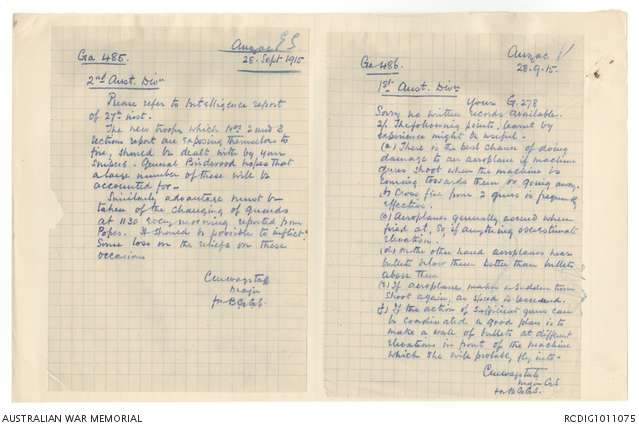 Ga 485.
Anzac
28. Sept 1915
2nd Aust. Divn
Please refer to Intelligence report
of 27th inst.
The new troops which Nos. 2 and 3
Sections report are exposing themselves to
fire, should be dealt with by your
snipers. General Birdwood hopes that
a large number of these will be
accounted for.
Similarly advantage must be
taken of the changing of guards
at 1130 every morning reported from
Popes. It should be possible to inflict
some loss on the reliefs on these
occasions
Major
for B.G.G.S.
Ga 486.
Anzac
28.9.15.
1st Aust. Divn
Your G.278
Sorry no written records available.
2/ The following points, learnt by
experience might be useful -
(a) There is the best chance of doing
damage to an aeroplane if machine
guns shoot when the machine is
coming towards them or going away.
(b) Cross fire from 2 guns is frequently
effective.
(c) Aeroplanes generally ascend when
fired at, so if anything overestimate
elevation.
(d) On the other hand aeroplanes hear
bullets below them better than bullets
above them
(e) If aeroplane makes a sudden turn
shoot again, as speed is lessened.
(f) If the action of sufficient guns can
be coordinated a good plan is to
make a wall of bullets at different
elevations in front of the machine
which she will probably fly into.
Major G.S.
for B.G.G.S.
AUSTRALIAN WAR MEMORIAL
RCDIG1011075